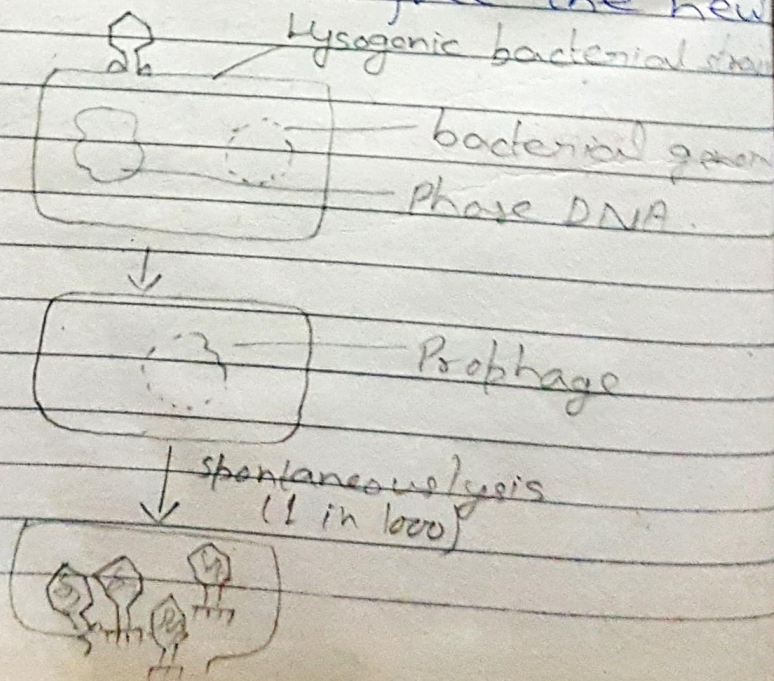 the new
Lysogenic bacterial
bacterial
Phage DNA.
Prophage
spontaneous lysis
(1 in 1000)